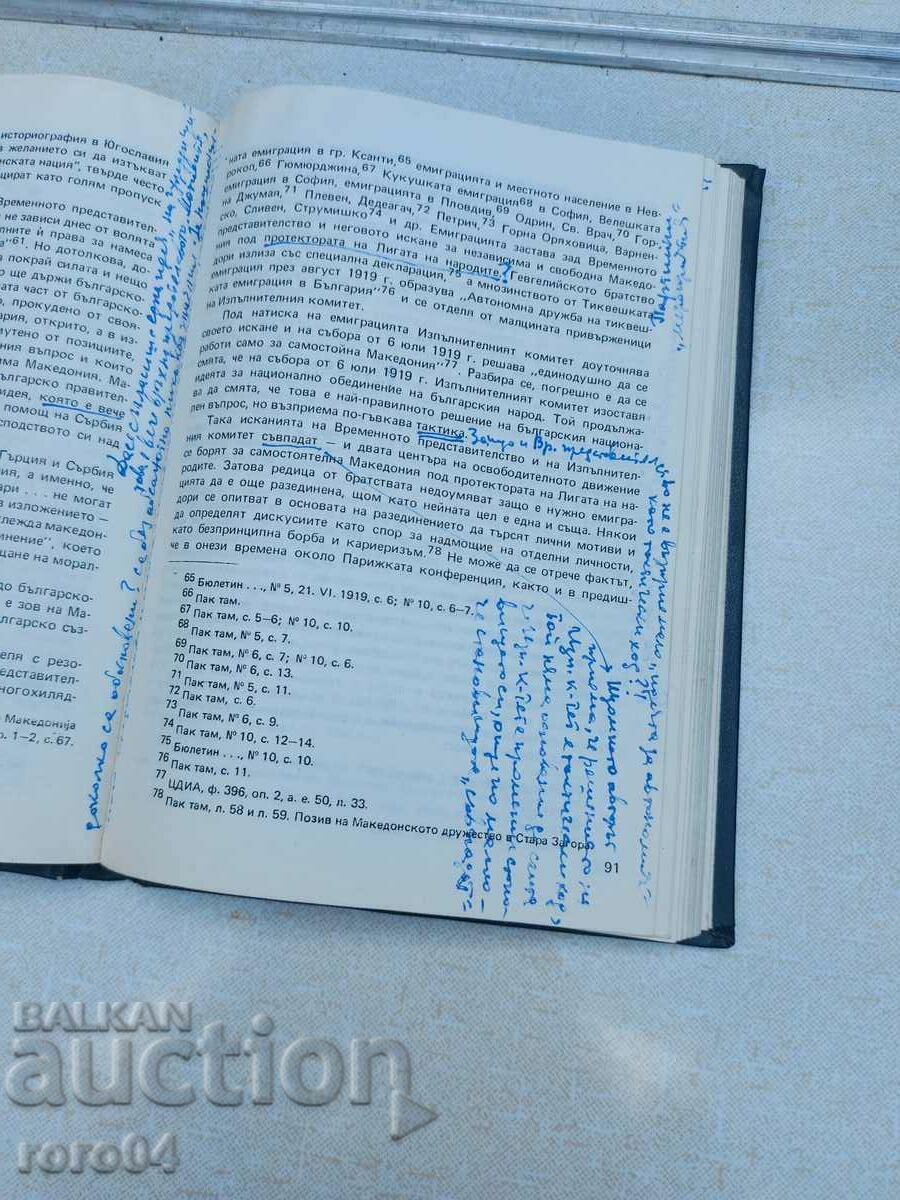 историография в Югославия
в желанието си да изтъкват
нската нация", твърде често
цират като голям пропуск
Временното представител
не зависи днес от волята
лните ѝ права за намеса
а"61. Но дотолкова, до-
покрай силата и нещо
е ще държи българско-
ата част от българска-
, прокудено от своя-
ария, открито, а в из-
мутено от позициите,
ния въпрос и които
има Македония. Ма-
българско правител-
идея, която е вече
помощ на Сърбия
сподството си над
Гърция и Сърбия
а именно, че
ари . . . не могат
изложението –
глежда македон-
инение", което
щане на морал-
до българско-
е зов на Ма-
българско съз-
епя с резо-
редставител-
ногохиляд-
Македонија
р. 1–2, с. 67.
ната емиграция в гр. Ксанти,65 емиграцията и местното население в Нев-
рокоп,66 Гюмюрджина,67 Кукушката емиграция68 в София, Велешката
емиграция в София, емиграцията в Пловдив,69 Одрин, Св. Врач,70 Гор.
Джумая,71 Плевен, Дедеагач,72 Петрич,73 Горна Оряховица, Варнен-
ско, Сливен, Струмишко74 и др. Емиграцията застава зад Временното
представителство и неговото искане за независима и свободна Македо-
ния под протектората на Лигата на народите. Гевгелийското братство
дори излиза със специална декларация,75 а мнозинството от Тиквешката
емиграция през август 1919 г. образува „Автономна дружба на тиквеш-
ката емиграция в България"76 и се отделя от малцината привърженици
на Изпълнителния комитет.
Под натиска на емиграцията Изпълнителният комитет доуточнява
своето искане и на събора от 6 юли 1919 г. решава „единодушно да се
работи само за самостойна Македония"77. Разбира се, погрешно е да се
смята, че на събора от 6 юли 1919 г. Изпълнителният комитет изоставя
идеята за национално обединение на българския народ. Той продължа-
ва да смята, че това е най-правилното решение на българския национа-
лен въпрос, но възприема по-гъвкава тактика.
Така исканията на Временното Представителство и на Изпълнител-
ния комитет съвпадат – и двата центъра на освободителното движение
се борят за самостоятелна Македония под протектората на Лигата на на-
родите. Затова редица от братствата недоумяват защо е нужно емигра-
цията да е още разединена, щом като нейната цел е една и съща. Някои
дори се опитват в основата на разединението да търсят лични мотиви и
да определят дискусиите като спор за надмощие на отделни личности,
като безпринципна борба и кариеризъм.78 Не може да се отрече фактът,
че в онези времена около Парижката конференция, както и в предиш-
65 Бюлетин . . ., № 5, 21. VI. 1919, с. 6; № 10, с. 6–7.
66 Пак там.
67 Пак там, с. 5–6; № 10, с. 10.
68 Пак там, № 5, с. 7.
69 Пак там, № 6, с. 7; № 10, с. 6.
70 Пак там, № 6, с. 13.
71 Пак там, № 5, с. 11.
72 Пак там, с. 6.
73 Пак там, № 6, с. 9.
74 Пак там, № 10, с. 12–14.
75 Бюлетин . . ., № 10, с. 10.
76 Пак там, с. 11.
77 ЦДИА, ф. 396, оп. 2, а. е. 50, л. 33.
78 Пак там, л. 58 и л. 59. Позив на Македонското дружество в Стара Загора.
91
Защо и Вр. представителство не е възприемало идеята за автономия
като тактически ход?
Щом като авторът
приема, че решението на
Изп. к-тет е тактически ход,
той няма основание да счита,
че Изп. к-тет е променил стано-
вището си,
че становищата „съвпадат"
BALKAN
auction
roro04